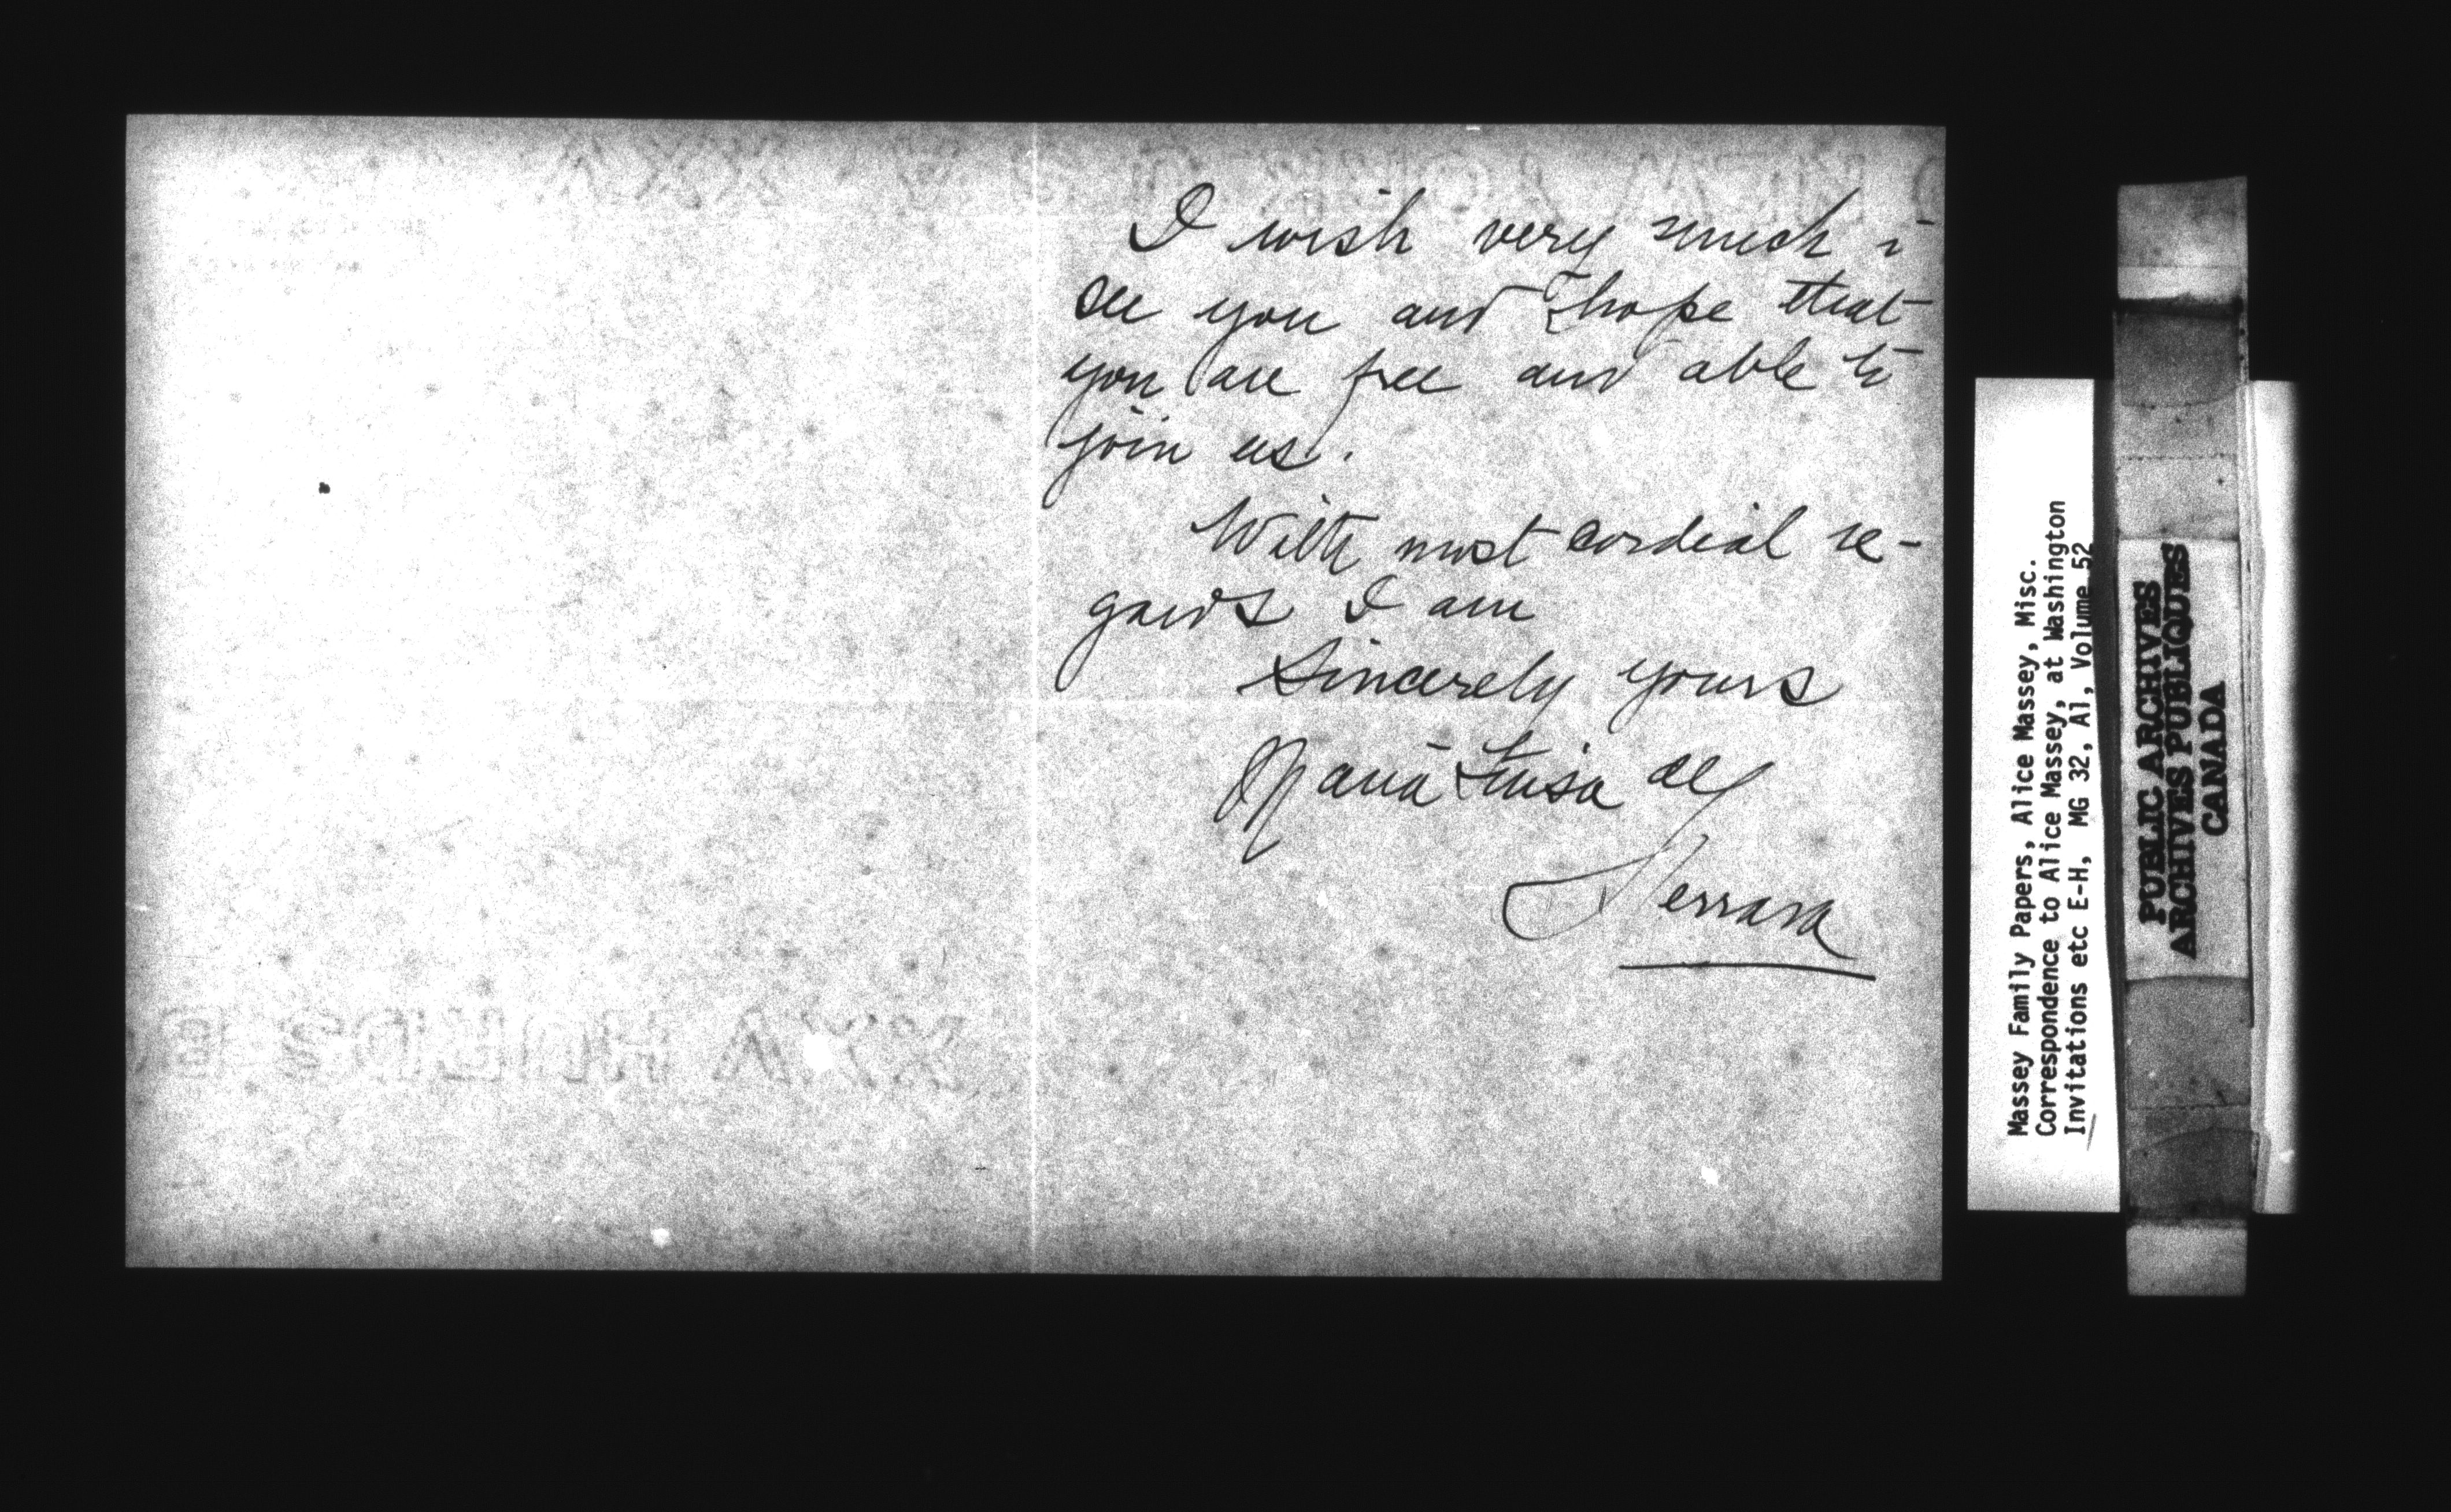 I wish very much to
see you and I hope that
you are free and able to
join us.
With most cordial re-
gards I am
Sincerely yours
Maria Luisa de
Ferrara
Massey Family Papers, Alice Massey, Misc.
Correspondence to Alice Massey, at Washington
Invitations etc E-H, MG 32, A1, Volume 52
PUBLIC ARCHIVES
ARCHIVES PUBLIQUES
CANADA